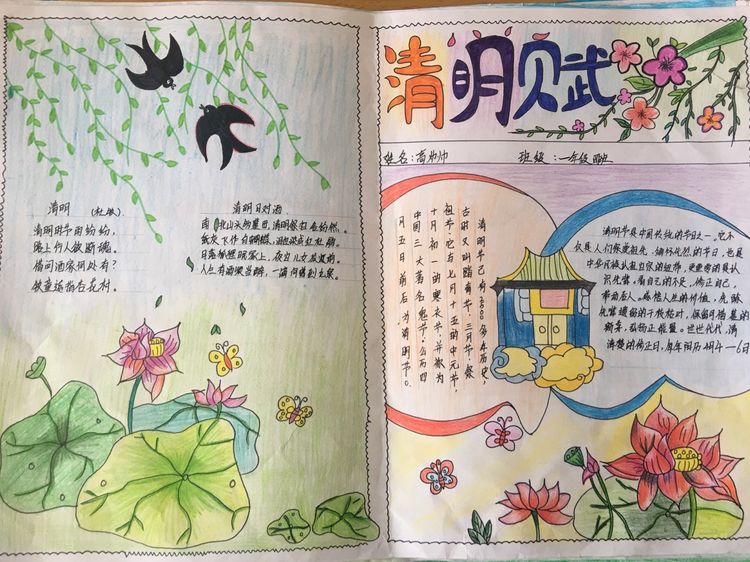 清明赋
姓名：高帅帅 班级：一年级四班
清明 （杜牧）
清明时节雨纷纷，
路上行人欲断魂。
借问酒家何处有？
牧童遥指杏花村。
清明日对酒
南北山头多墓田，清明祭扫各纷然。
纸灰飞作白蝴蝶，泪血染成红杜鹃。
日落狐狸眠冢上，夜归儿女笑灯前。
人生有酒须当醉，一滴何曾到九泉。
清明节已有2500多年历史，
古时又叫踏青节·三月节·祭
祖节·它与七月十五的中元节，
十月初一的寒衣节·并称为
中国三大著名鬼节·公历四
月五日前后为清明节。
清明节是中国传统的节日之一，它不
仅是人们祭奠祖先、缅怀先烈的节日，也是
中华民族认祖归宗的纽带，更重要的是认
看自己的不足，修正自己，
带动后人。感悟人生的价值，
世世代代
日，每年阳历4月4—6日